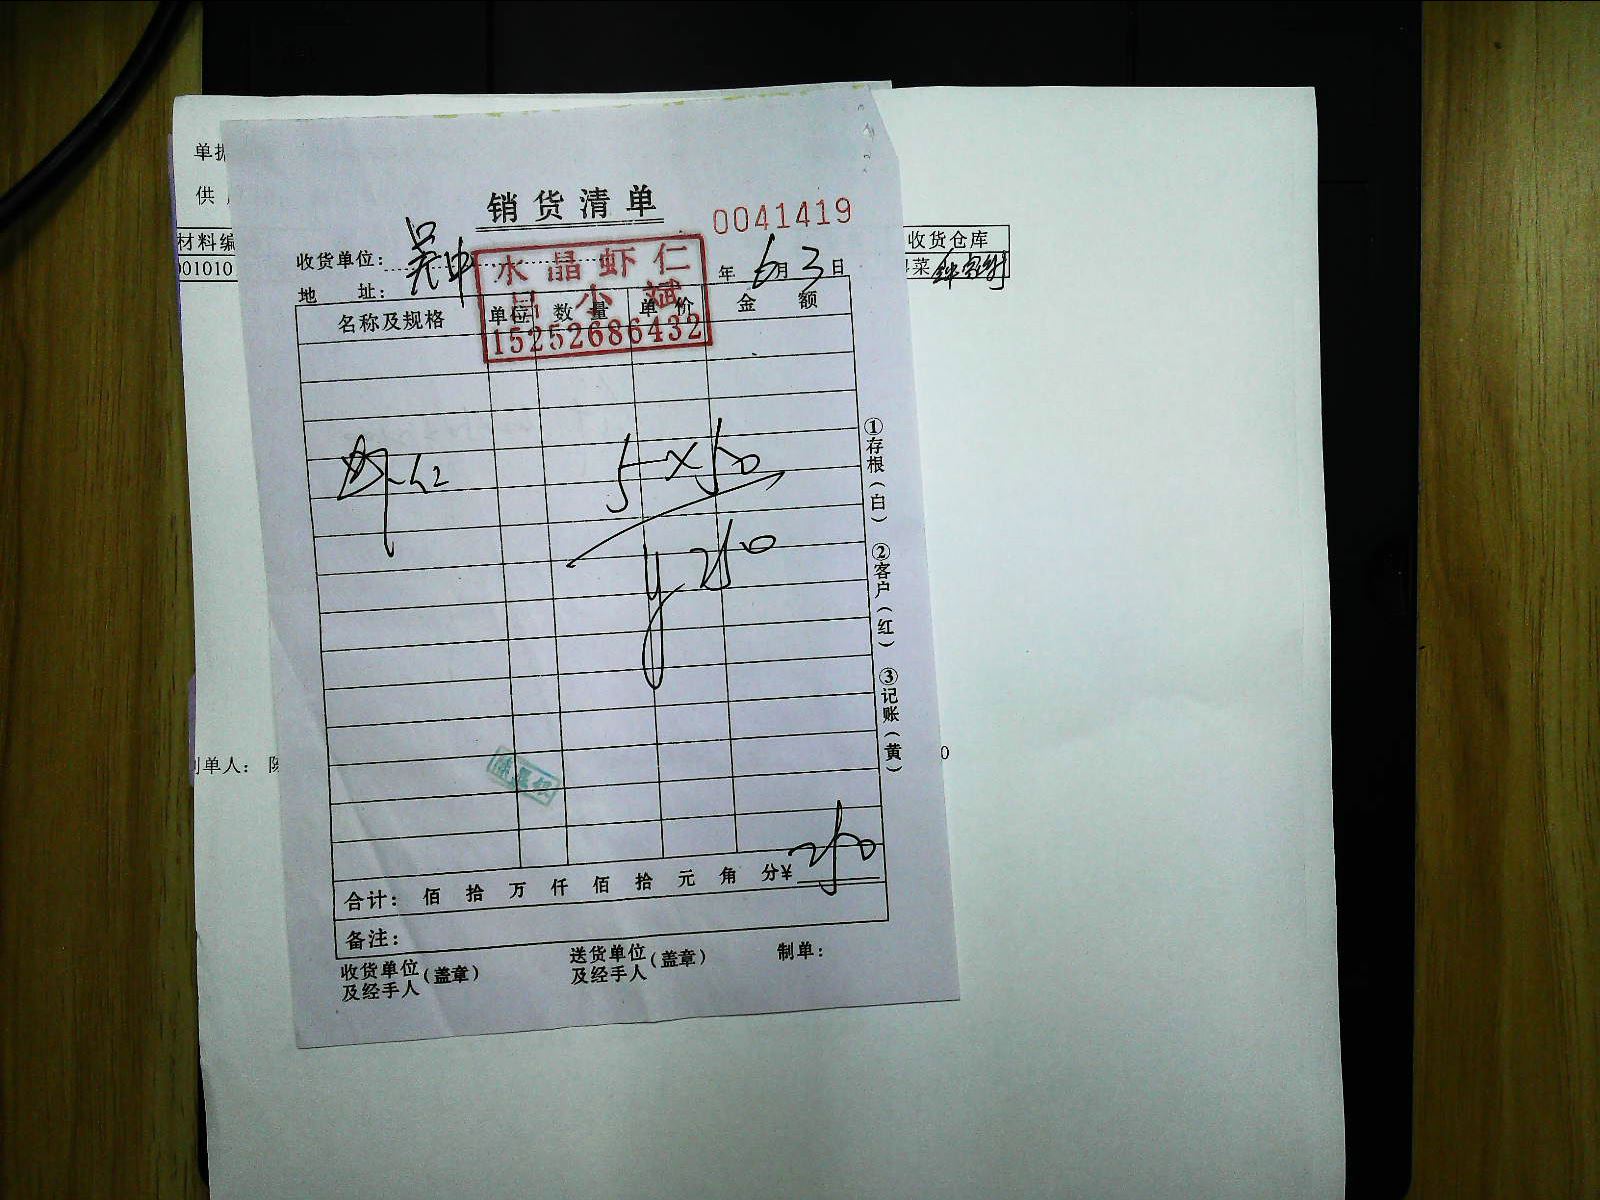 单据
供
材料编
收货仓库
001010
菜
销货清单
0041419
收货单位: 吴中
年 6月 3日
地 址:
水晶虾仁
吕小斌
15252686432
名称及规格 单位 数量 单价 金额
虾仁 5×50
¥ 250
①存根(白) ②客户(红) ③记账(黄)
制单人: 陈
0
合计: 佰 拾 万 仟 佰 拾 元 角 分 ¥ 250
备注:
收货单位及经手人(盖章) 送货单位及经手人(盖章) 制单: